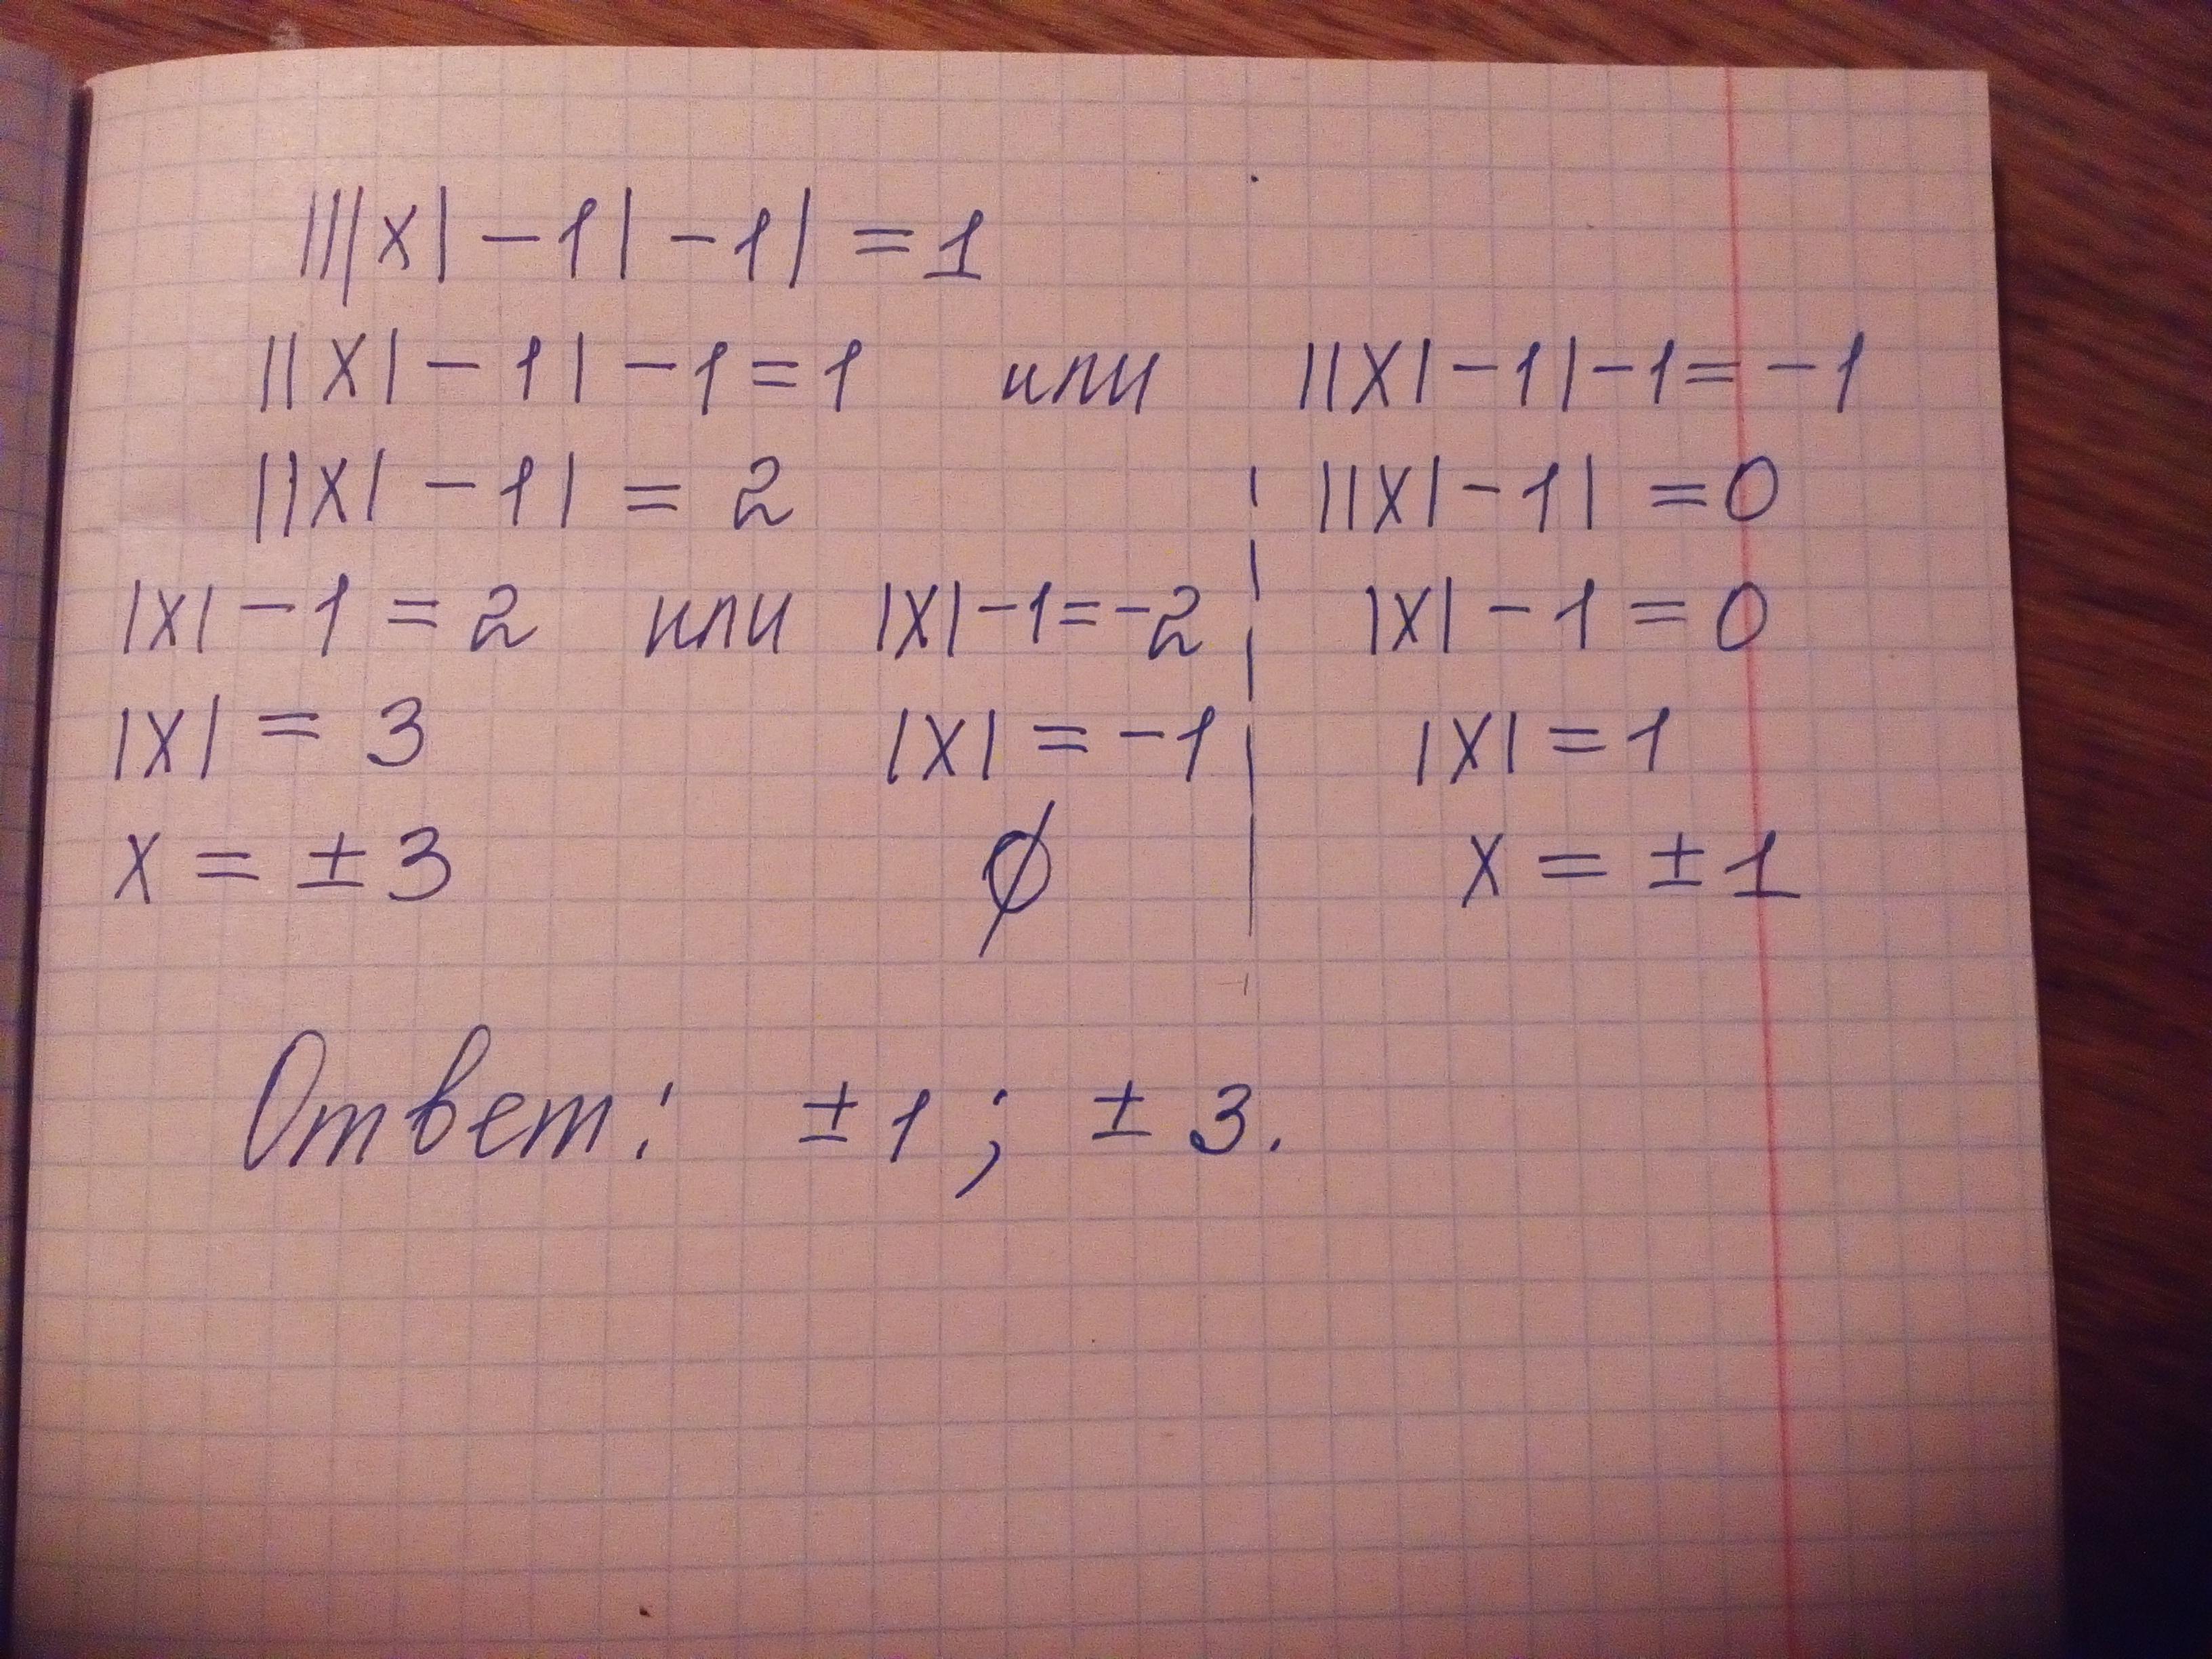 |||x| - 1| - 1| = 1
||x| - 1| - 1 = 1 или ||x| - 1| - 1 = -1
||x| - 1| = 2 ||x| - 1| = 0
|x| - 1 = 2 или |x| - 1 = -2 |x| - 1 = 0
|x| = 3 |x| = -1 |x| = 1
x = ± 3 ∅ x = ± 1
Ответ: ± 1 ; ± 3.